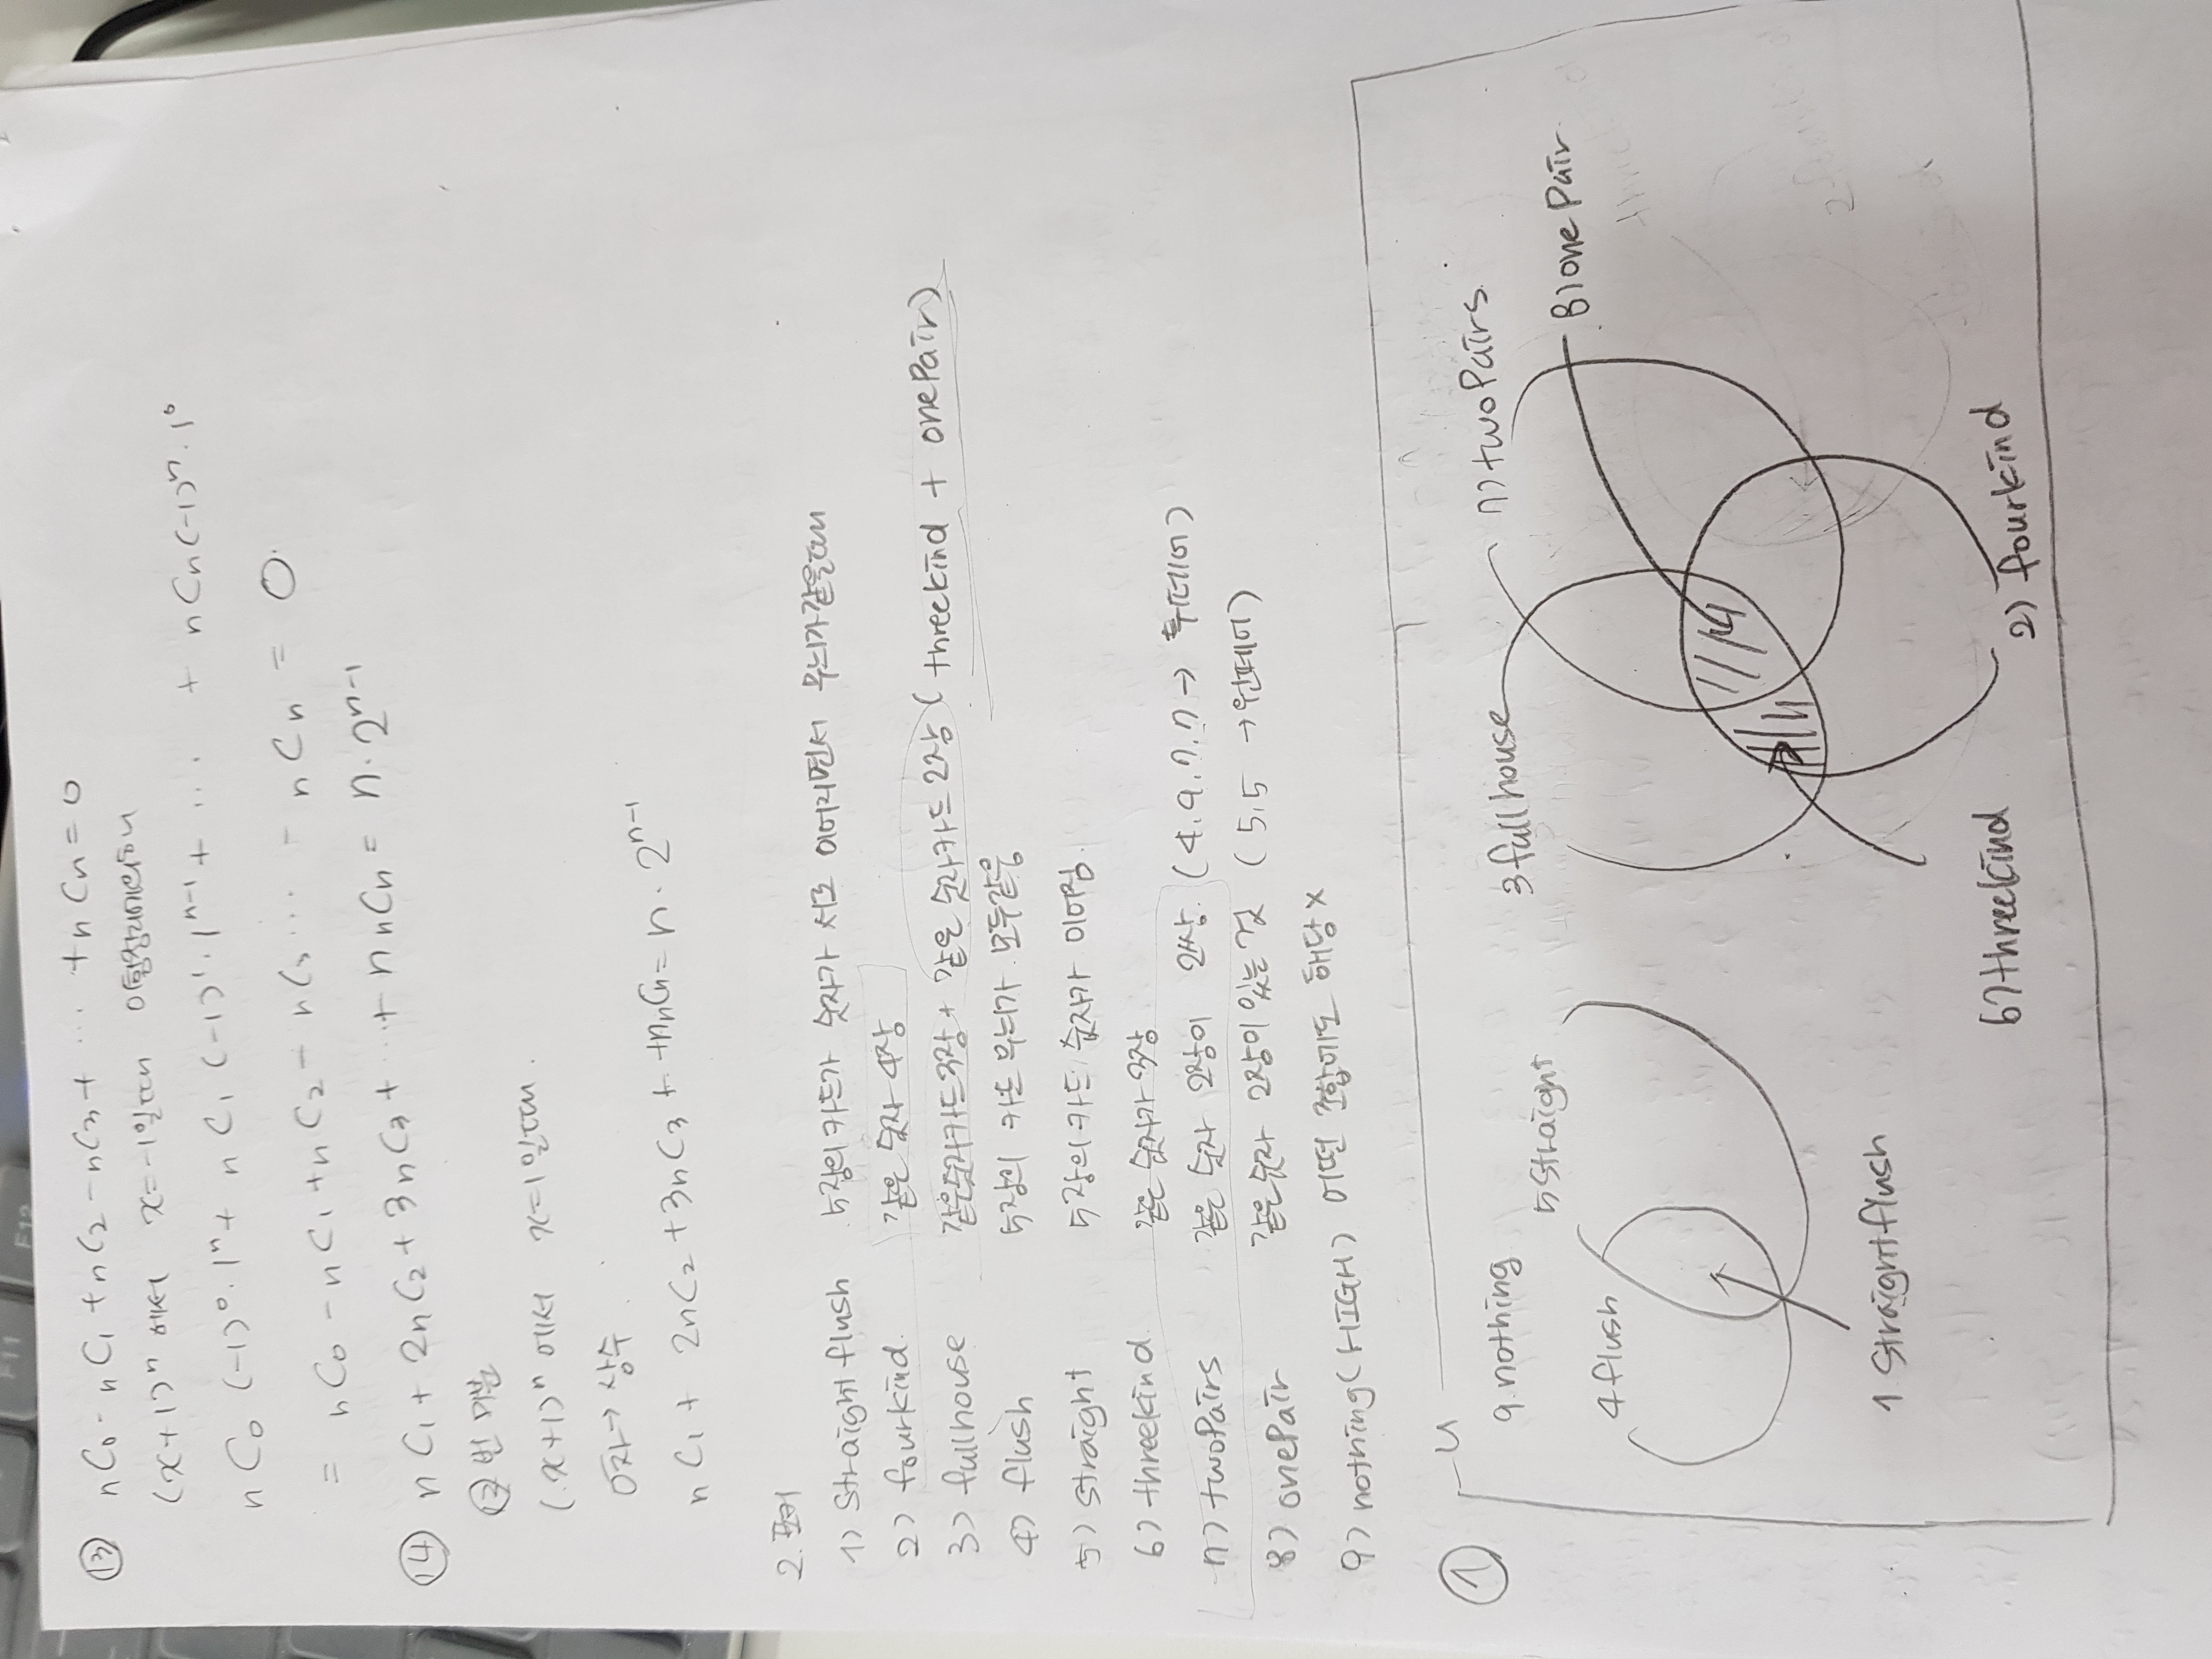 F11
F12
⑬ nC0 - nC1 + nC2 - nC3 + ... + nCn = 0
(x+1)ⁿ 에서 x=-1일때 이항정리에의해
nC0 (-1)⁰·1ⁿ + nC1 (-1)¹·1ⁿ⁻¹ + ... + nCn(-1)ⁿ·1⁰
= nC0 - nC1 + nC2 - nC3 ... - nCn = 0.
⑭ nC1 + 2nC2 + 3nC3 + ... + n nCn = n·2ⁿ⁻¹
번 미분
(x+1)ⁿ 에서 x=1일때.
상수
nC1 + 2nC2 + 3nC3 + .. + n nCn = n·2ⁿ⁻¹
2. 포커
1) Straight flush 5장의 카드가 숫자가 서로 이어지면서 무늬가같을때
2) fourkind. 같은 숫자 4장
3) fullhouse 같은숫자카드3장 + 같은 숫자카드 2장 (threekind + onePair)
4) flush 5장의 카드 무늬가 모두같음
5) straight 5장의 카드 숫자가 이어짐
6) threekind. 같은 숫자가 3장
7) twoPairs 같은 숫자 2장이 2쌍. (4.4.7.7 → 투페어)
8) onePair 같은숫자 2장이 있는 것 (5,5 → 원페어)
9) nothing(HIGH) 어떤 조합에도 해당 x
① U
9. nothing
3 fullhouse
7) twoPairs
5 Straight
8) one Pair
4 flush
1 Straightflush
6) threekind
2) fourkind